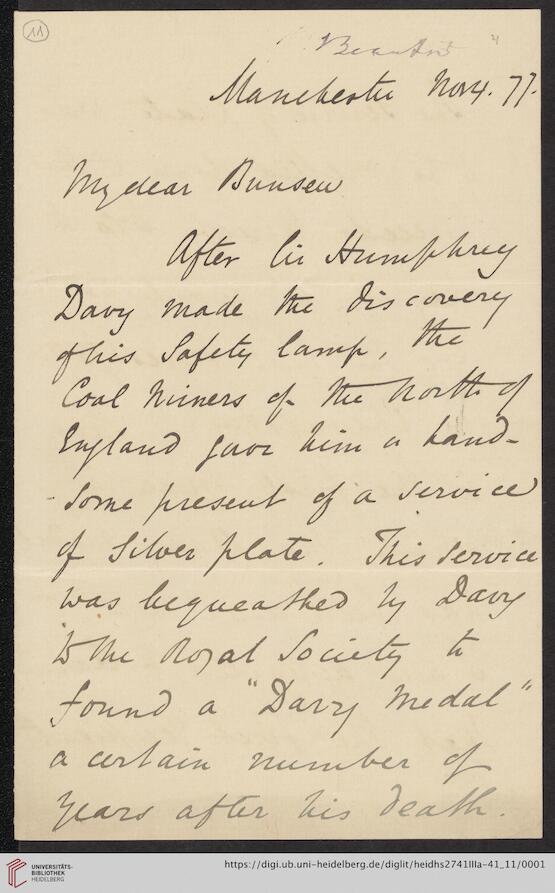 11
Manchester Nov 4. 77.
My dear Bunsen
After Sir Humphrey
Davy made the discovery
of his Safety lamp, the
Coal Miners of the North of
England gave him a hand-
-some present of a service
of Silver plate. This Service
was bequeathed by Davy
to the Royal Society to
found a "Davy Medal"
a certain number of
years after his death.
UNIVERSITÄTS-
BIBLIOTHEK
HEIDELBERG
https://digi.ub.uni-heidelberg.de/diglit/heidhs2741IIIa-41_11/0001